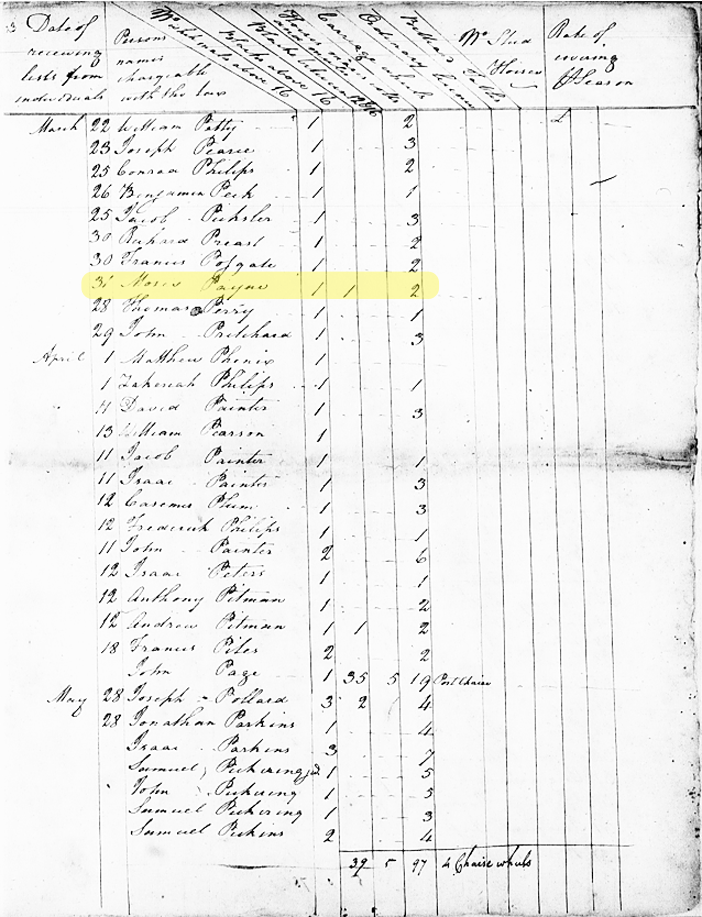 Date of receiving lists from individuals
Persons names chargeable with the tax
No white males above 16
Blacks above 16
Blacks above 12 & 16
Carriage wheels
Ordinary licence
Billiard Tables
No Stud Horses
Rate of covering Season
March 22 William Petty 1 2
23 Joseph Pearce 1 3
25 Conrad Philips 1 2
26 Benjamin Peck 1 1
25 Jacob 1 3
30 Richard 1 2
30 Francis Posgate 1 2
31 Moses Payne 1 1 2
28 Thomas Perry 1 1
29 John Pritchard 1 3
April 1 Matthew Phenix 1
1 Zakeriah Philips 1 1
4 David Painter 1 3
13 William Pearson 1
11 Jacob Painter 1 1
11 Isaac Painter 1 3
12 Casemer Plum 1 3
12 Frederick Philips 1 1
11 John Painter 2 6
12 Isaac Peters 1 1
12 Anthony Pitman 1 2
12 Andrew Pitman 1 1 2
18 Francis Piles 2 2
John Page 1 35 5 19 Post Chaise
May 28 Joseph Pollard 3 2 4
28 Jonathan Parkins 1 4
Isaac Parkins 3 7
Samuel Pickering 1 5
John Pickering 1 5
Samuel Pickering 1 3
Samuel Pickins 2 4
39 5 97 4 Chaise wheels